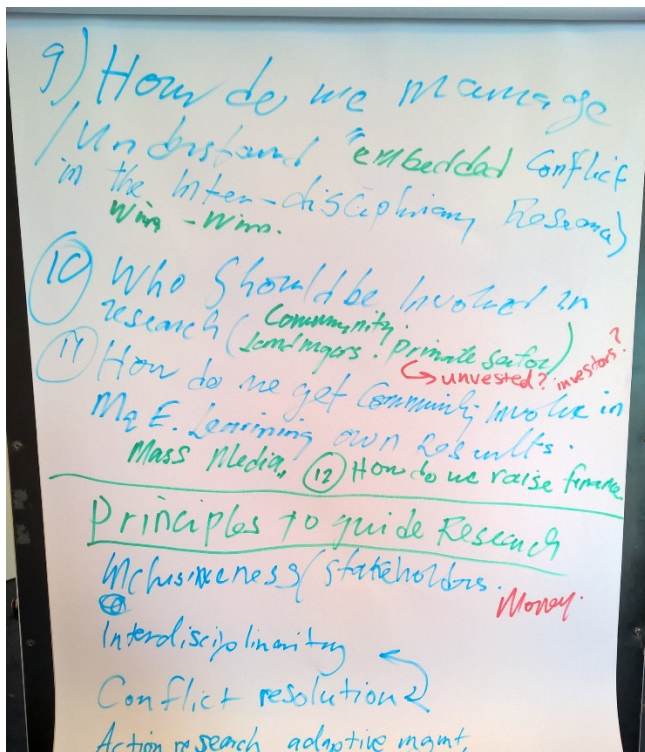 9) How do we manage
/ Understand "embedded Conflict
in the Inter-disciplinary Research)
Wins - Wins.
10 Who Should be Involved in
research (Community.
Landmgers. Private sector)
→ unvested? investors?
11 How do we get Community Involve in
M & E. Learning own Results.
Mass Media, 12 How do we raise finance
Principles to guide Research
Inclusiveness / stakeholders.
Money.
Interdisciplinarity
Conflict resolution
Action research adaptive mgmt.